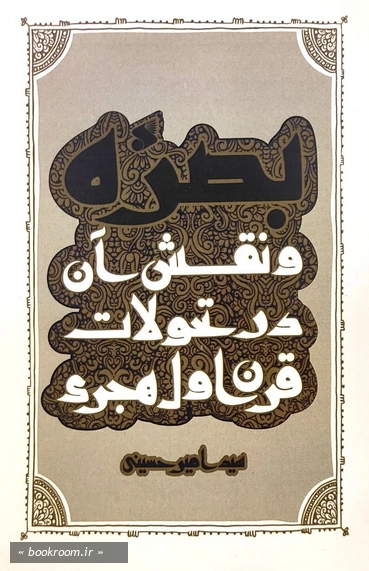 بصره
و نقش آن
در تحولات
قرن اول هجری
سیما میرحسینی
« bookroom.ir »